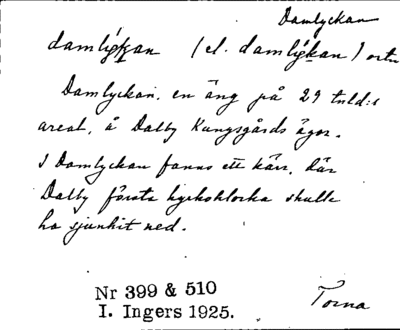 Damlyckan
damlýkan (el. damlýkan) ortn
Damlyckan, en äng på 29 tnld:s
areal, å Dalby Kungsgårds ägor.
I Damlyckan fanns ett kärr, där
Dalby första kyrkoklocka skulle
ha sjunkit ned.
Nr 399 & 510
I. Ingers 1925.
Torna